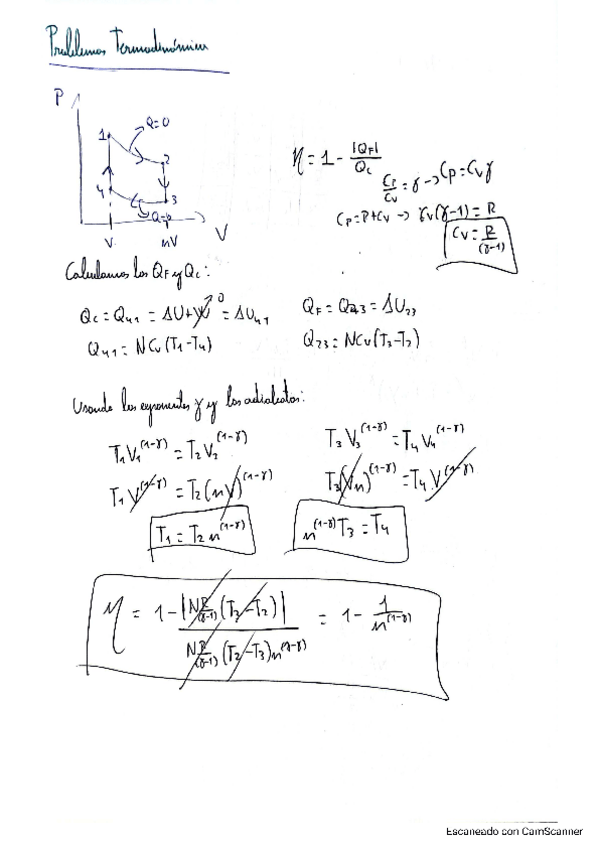 Problemas Termodinámica
P
1
Q=0
2
4
3
Q=0
V
nV
V
η = 1 - |QF|/Qc
Cp/Cv = γ → Cp = Cvγ
Cp = R + Cv → γv(γ-1) = R
Cv = R/(γ-1)
Calculamos los QF y Qc:
Qc = Q41 = ΔU + W 0 = ΔU41
QF = Q23 = ΔU23
Q41 = NCv(T1-T4)
Q23 = NCv(T3-T2)
Usando los exponentes γ y los adiabatas:
T1V1^(1-γ) = T2V2^(1-γ)
T3V3^(1-γ) = T4V4^(1-γ)
T1V^(1-γ) = T2(nV)^(1-γ)
T3(Vn)^(1-γ) = T4V^(1-γ)
T1 = T2n^(1-γ)
n^(1-γ)T3 = T4
η = 1 - |NR/(γ-1) (T3-T2)| / NR/(γ-1) (T2-T3)n^(1-γ) = 1 - 1/n^(1-γ)
Escaneado con CamScanner